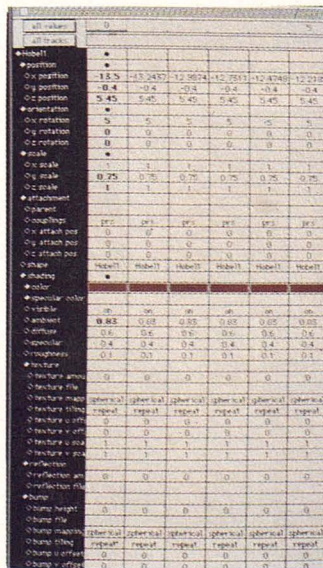 0 5
all values
all tracks
Hobel1
position
x position -13.5 -13.2437 -12.9874 -12.7311 -12.4748 -12.218
y position -0.4 -0.4 -0.4 -0.4 -0.4 -0.4
z position 5.45 5.45 5.45 5.45 5.45 5.45
orientation
x rotation 5 5 5 5 5 5
y rotation 0 0 0 0 0 0
z rotation 0 0 0 0 0 0
scale
x scale 1 1 1 1 1 1
y scale 0.75 0.75 0.75 0.75 0.75 0.75
z scale 1 1 1 1 1 1
attachment
parent
couplings prs prs prs prs prs prs
x attach pos 0 0 0 0 0 0
y attach pos 0 0 0 0 0 0
z attach pos 0 0 0 0 0 0
shape Hobel1 Hobel1 Hobel1 Hobel1 Hobel1 Hobel1
shading
color
specular color
visible on on on on on on
ambient 0.83 0.83 0.83 0.83 0.83 0.83
diffuse 0.6 0.6 0.6 0.6 0.6 0.6
specular 0.4 0.4 0.4 0.4 0.4 0.4
roughness 0.1 0.1 0.1 0.1 0.1 0.1
texture
texture amou 0 0 0 0 0 0
texture file
texture mapp spherical spherical spherical spherical spherical spherical
texture tiling repeat repeat repeat repeat repeat repeat
texture u off 0 0 0 0 0 0
texture v off 0 0 0 0 0 0
texture u sca 1 1 1 1 1 1
texture v sca 1 1 1 1 1 1
reflection
reflection am 0 0 0 0 0 0
reflection file
bump
bump height 0 0 0 0 0 0
bump file
bump mapping spherical spherical spherical spherical spherical spherical
bump tiling repeat repeat repeat repeat repeat repeat
bump u offset 0 0 0 0 0 0
bump v offset 0 0 0 0 0 0